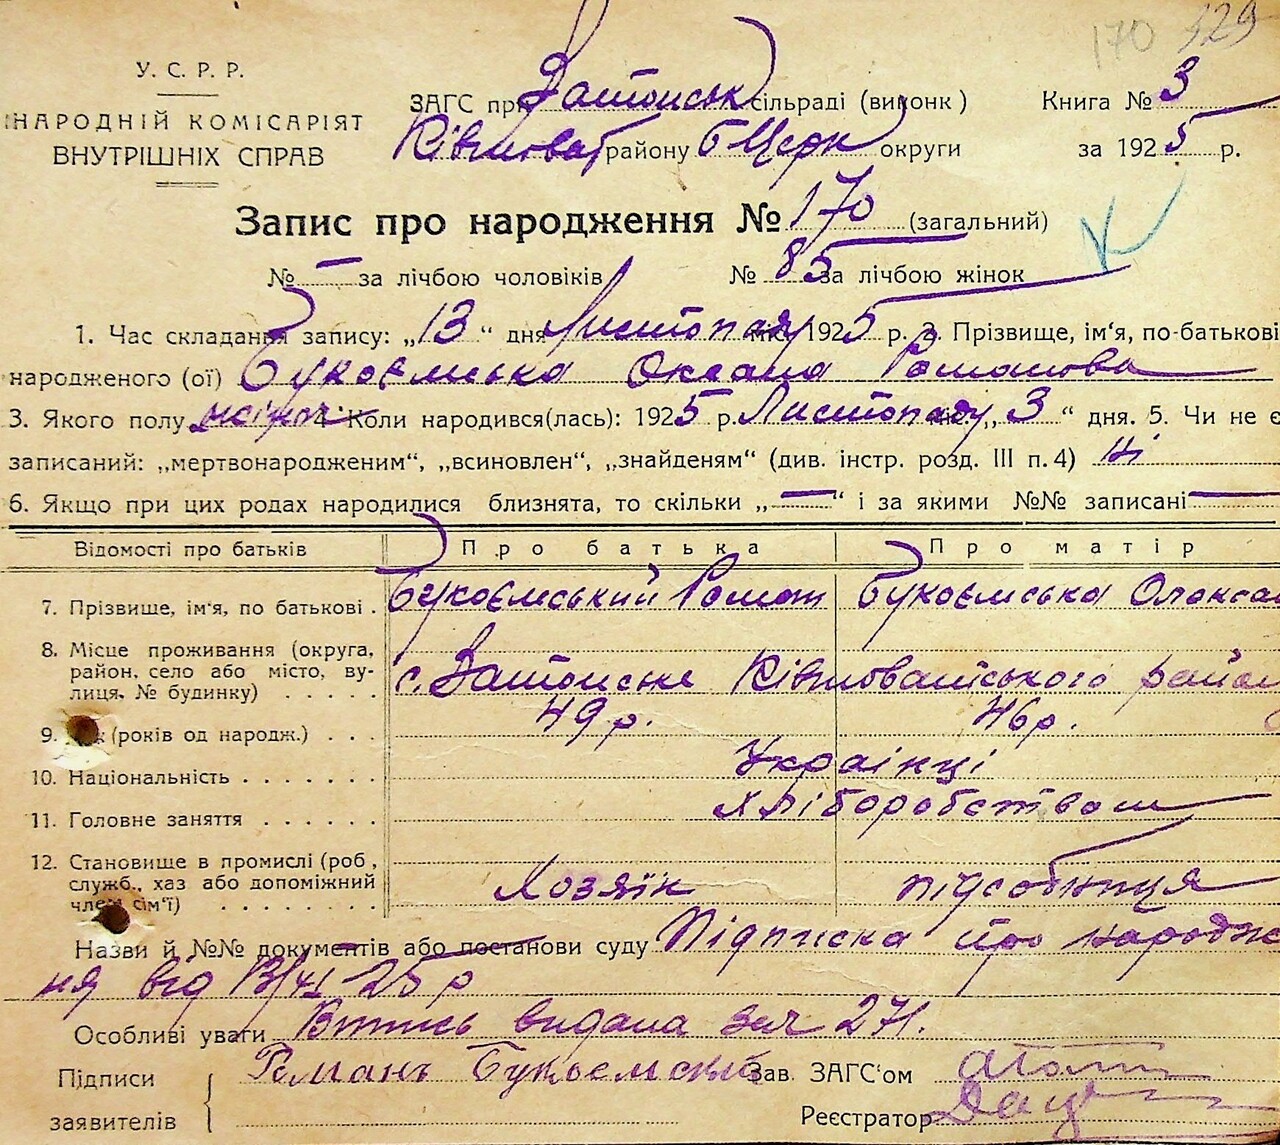 170 129
У. С. Р. Р.
НАРОДНІЙ КОМІСАРІЯТ
ВНУТРІШНІХ СПРАВ
ЗАГС при Затонськ сільраді (виконк)
Ківшоват району Б Церк округи
Книга № 3
за 1925 р.
Запис про народження № 170 (загальний)
№ — за лічбою чоловіків № 85 за лічбою жінок
1. Час складання запису: „13“ дня Листопаду міс. 1925 р. 2. Прізвище, ім'я, по-батькові
народженого (ої) Букоємська Оксана Романова
3. Якого полу жіноч 4 Коли народився(лась): 1925 р. Листопаду міс. „3“ дня. 5. Чи не є
записаний: „мертвонародженим“, „всиновлен“, „знайденям“ (див. інстр. розд. III п. 4) Ні
6. Якщо при цих родах народилися близнята, то скільки „—“ і за якими №№ записані —
Відомості про батьків Про батька Про матір
7. Прізвище, ім'я, по батькові . Букоємський Роман Букоємська Олексан
8. Місце проживання (округа,
район, село або місто, ву-
лиця, № будинку) . . . . . с. Затонське Ківшоватського району
9. (років од народж.) . . . 49 р. 46 р.
10. Національність . . . . . . . Українці
11. Головне заняття . . . . . . Хліборобством
12. Становище в промислі (роб,
служб., хаз або допоміжний
член сім'ї) . . . . . . . . Хозяїн підсобниця
Назви й №№ документів або постанови суду Підписка про народже
ня від 13/XI-25 р
Особливі уваги Витпись видана зач 271.
Підписи
заявителів
Романъ Букоемский
Зав. ЗАГС'ом
Реєстратор